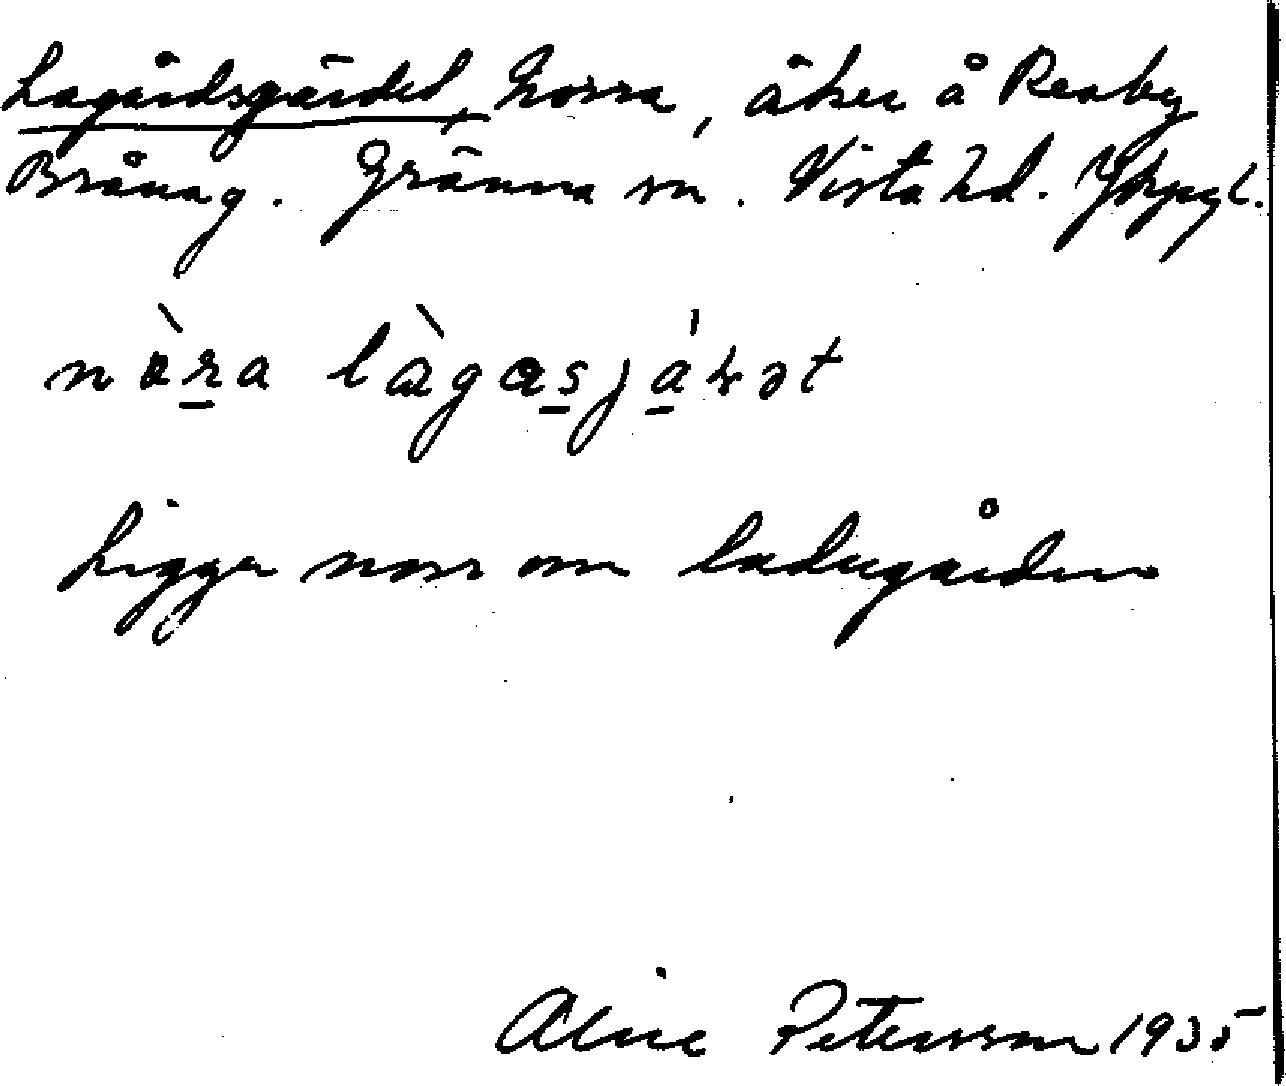 Lagårdsgärdet, Norra, åker å Reaby
Brånag. Gränna sn. Vista hd. Jkpgl.
Ligger norr om ladugården
Alice Petersson 1935